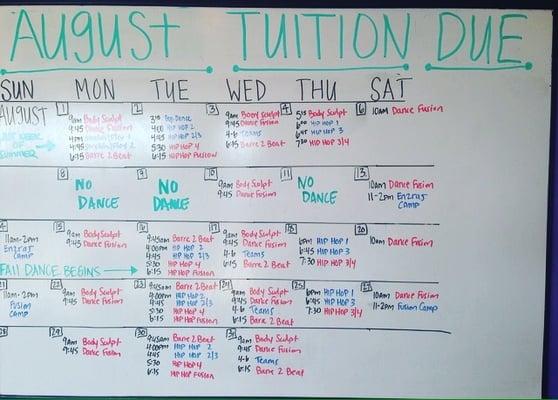 August Tuition Due
SUN MON TUE WED THU SAT
AUGUST
SUMMER
1
9am Body Sculpt
9:45 Dance Fusion
6:15 Barre 2 Beat
2
4:00 Hip Hop 2
4:45 Hip Hop 2/3
5:30 Hip Hop 4
6:15 Hip Hop Fusion
3
9am Body Sculpt
9:45 Dance Fusion
4-6 Teams
6:15 Barre 2 Beat
4
5:15 Body Sculpt
6:00 Hip Hop 1
6:45 Hip Hop 3
7:30 Hip Hop 3/4
6
10am Dance Fusion
8
NO
DANCE
9
NO
DANCE
10
9am Body Sculpt
9:45 Dance Fusion
11
NO
DANCE
13
10am Dance Fusion
11-2pm Enzras
Camp
11am-2pm
Enzras
Camp
15
9am Body Sculpt
9:45 Dance Fusion
16
9:45am Barre 2 Beat
4:00pm Hip Hop 2
4:45 Hip Hop 2/3
5:30 Hip Hop 4
6:15 Hip Hop Fusion
17
9am Body Sculpt
9:45 Dance Fusion
4-6 Teams
6:15 Barre 2 Beat
18
6pm Hip Hop 1
6:45 Hip Hop 3
7:30 Hip Hop 3/4
20
10am Dance Fusion
FALL DANCE BEGINS
21
11am-2pm
Fusion
Camp
22
9am Body Sculpt
9:45 Dance Fusion
23
9:45am Barre 2 Beat
4:00pm Hip Hop 2
4:45 Hip Hop 2/3
5:30 Hip Hop 4
6:15 Hip Hop Fusion
24
9am Body Sculpt
9:45 Dance Fusion
4-6 Teams
6:15 Barre 2 Beat
25
6pm Hip Hop 1
6:45 Hip Hop 3
7:30 Hip Hop 3/4
27
10am Dance Fusion
11-2pm Fusion Camp
28
29
9am Body Sculpt
9:45 Dance Fusion
30
9:45am Barre 2 Beat
4:00pm Hip Hop 2
4:45 Hip Hop 2/3
5:30 Hip Hop 4
6:15 Hip Hop Fusion
31
9am Body Sculpt
9:45 Dance Fusion
4-6 Teams
6:15 Barre 2 Beat